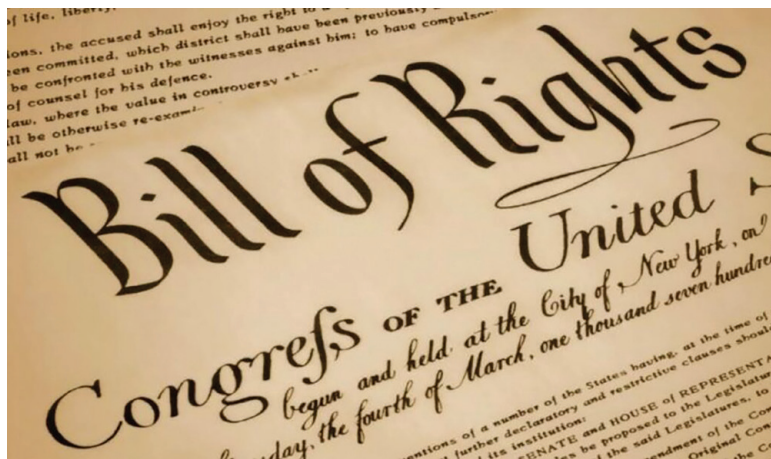 of life, liberty,
ions, the accused shall enjoy the right to a
een committed, which district shall have been previously
be confronted with the witnesses against him; to have compulsor
of counsel for his defence.
law, where the value in controversy shall
ll be otherwise re-exami
all not be
Bill of Rights
Congreſs OF THE United S
begun and held at the City of New York, on
day, the fourth of March, one thousand seven hundre
entions of a number of the States having, at the time of
further declaratory and restrictive clauses shoul
its institution:
SENATE and HOUSE of REPRESENTA
be proposed to the Legislatur
the said Legislatures, to
endment of the Con
Original Con